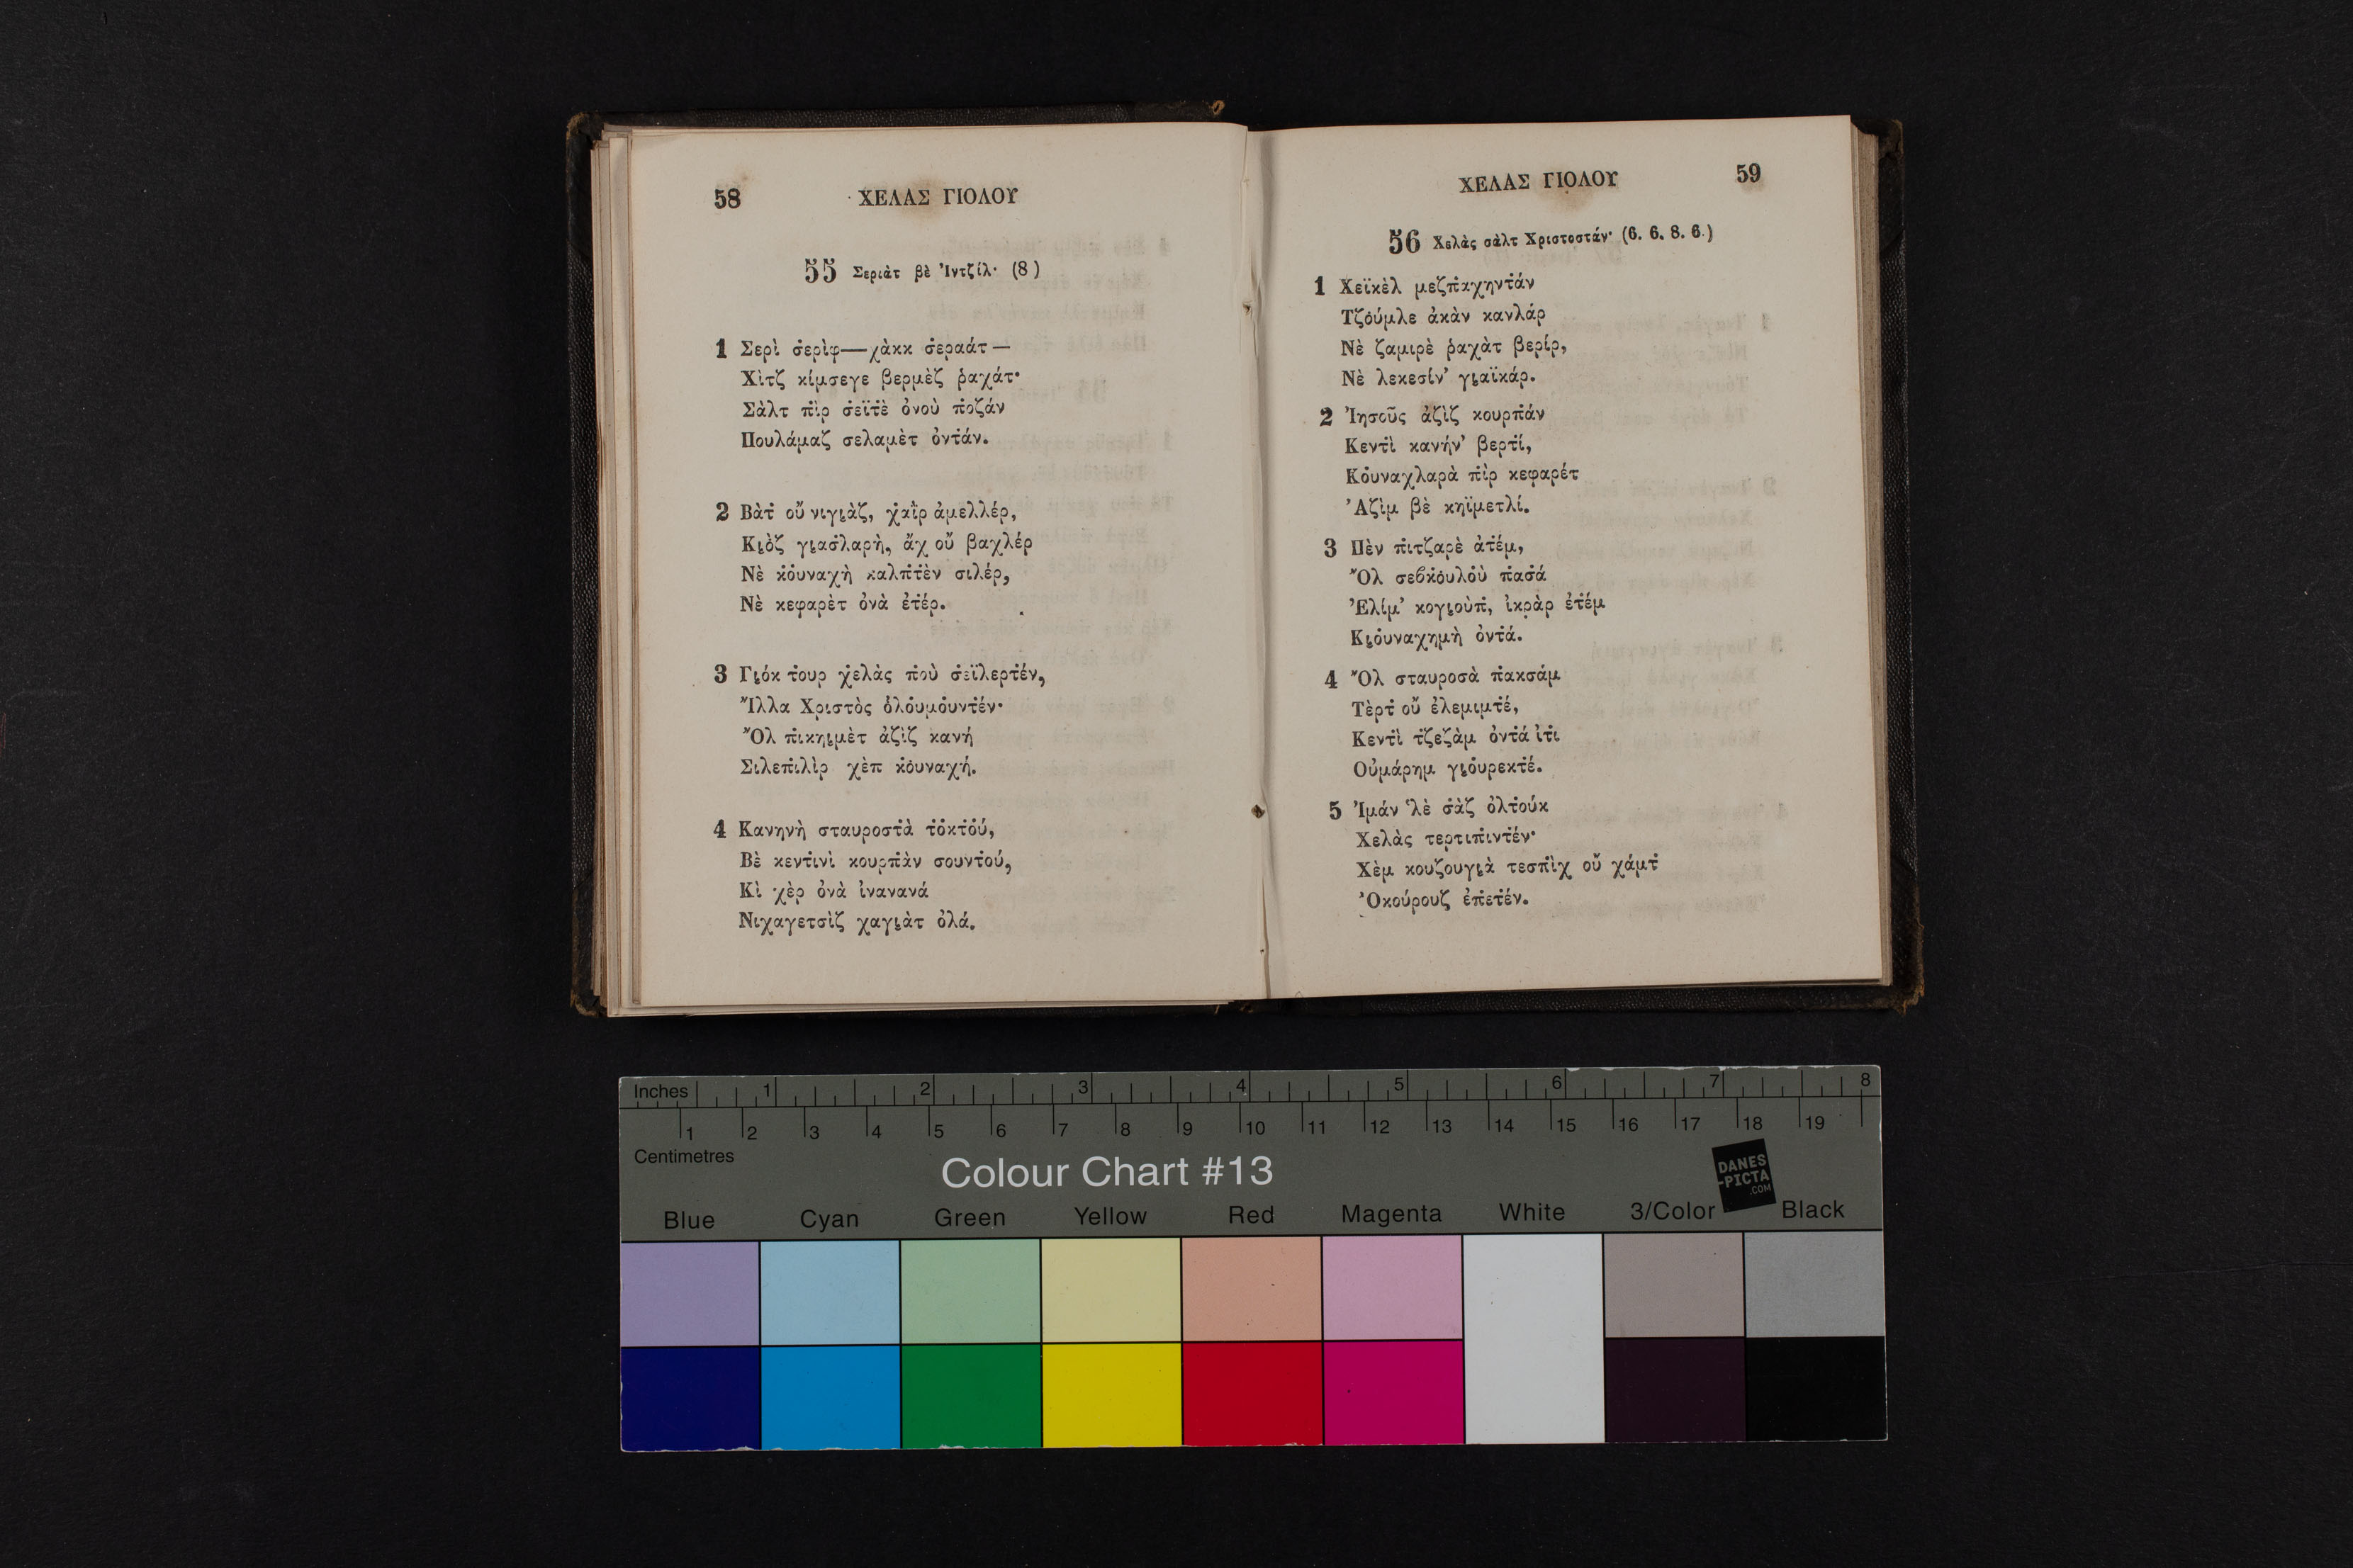 58 ΧΕΛΑΣ ΓΙΟΛΟΥ
55 Σεριὰτ βὲ Ἰντζίλ· (8)
1 Σερὶ σ̇ερὶφ—χὰκκ σ̇εραάτ—
Χὶτζ κίμσεγε βερμὲζ ῥαχάτ·
Σὰλτ π̇ὶρ σ̇εϊτ̇ὲ ὀνοὺ π̇οζάν
Πουλάμαζ σελαμὲτ ὀντ̇άν.
2 Βὰτ̇ οὔ νιγι̯ὰζ, χαῒρ ἀμελλέρ,
Κι̯ὸζ γι̯ασ̇λαρὴ, ἄχ οὔ βαχλέρ
Νὲ κ̇ο̇υναχὴ καλπτ̇ὲν σιλέρ,
Νὲ κεφαρὲτ ὀνὰ ἐτ̇έρ.
3 Γι̯όκ τ̇ουρ χελὰς π̇οὺ σ̇εϊλερτ̇έν,
Ἴλλα Χριστὸς ὀ̇λο̇υμο̇υντ̇έν·
Ὂλ π̇ικηι̯μὲτ ἀζὶζ κανή
Σιλεπ̇ιλὶρ χὲπ κ̇ο̇υναχή.
4 Κανηνὴ σταυροστ̇ὰ τ̇ο̇κτ̇ο̇ύ,
Βὲ κεντ̇ινὶ κουρπ̇ὰν σουντ̇ού,
Κὶ χὲρ ὀνὰ ἰνανανά
Νιχαγετσὶζ χαγι̯ὰτ ὀλά.
ΧΕΛΑΣ ΓΙΟΛΟΥ 59
56 Χελὰς σὰλτ Χριστοστάν· (6. 6. 8. 6.)
1 Χεϊκὲλ μεζπ̇αχηντ̇άν
Τζο̇ύμλε ἀκὰν κανλάρ
Νὲ ζαμιρὲ ῥαχὰτ βερίρ,
Νὲ λεκεσίν' γι̯αϊκάρ.
2 Ἰησοῦς ἀζὶζ κουρπ̇άν
Κεντ̇ὶ κανήν' βερτ̇ί,
Κο̇υναχλαρὰ π̇ὶρ κεφαρέτ
Ἀζὶμ βὲ κηϊμετλί.
3 Πὲν π̇ιτζαρὲ ἀτ̇έμ,
Ὂλ σεβκ̇ο̇υλο̇ὺ π̇ασ̇ά
Ἐλίμ' κογι̯οὺπ̇, ἰκρὰρ ἐτ̇έμ
Κι̯ο̇υναχημὴ ὀντ̇ά.
4 Ὂλ σταυροσὰ π̇ακσάμ
Τὲρτ̇ οὔ ἐλεμιμτ̇έ,
Κεντ̇ὶ τζεζὰμ ὀντ̇ά ἰτ̇ι
Οὐμάρημ γι̯ο̇υρεκτ̇έ.
5 Ἰμάν 'λὲ σ̇ὰζ ὀλτ̇ούκ
Χελὰς τερτιπ̇ιντ̇έν·
Χὲμ κουζουγι̯ὰ τεσπ̇ὶχ οὔ χάμτ̇
Ὀκούρουζ ἐπ̇ετ̇έν.
Inches 1 2 3 4 5 6 7 8
1 2 3 4 5 6 7 8 9 10 11 12 13 14 15 16 17 18 19
Centimetres
Colour Chart #13
DANES
-PICTA
.COM
Blue Cyan Green Yellow Red Magenta White 3/Color Black